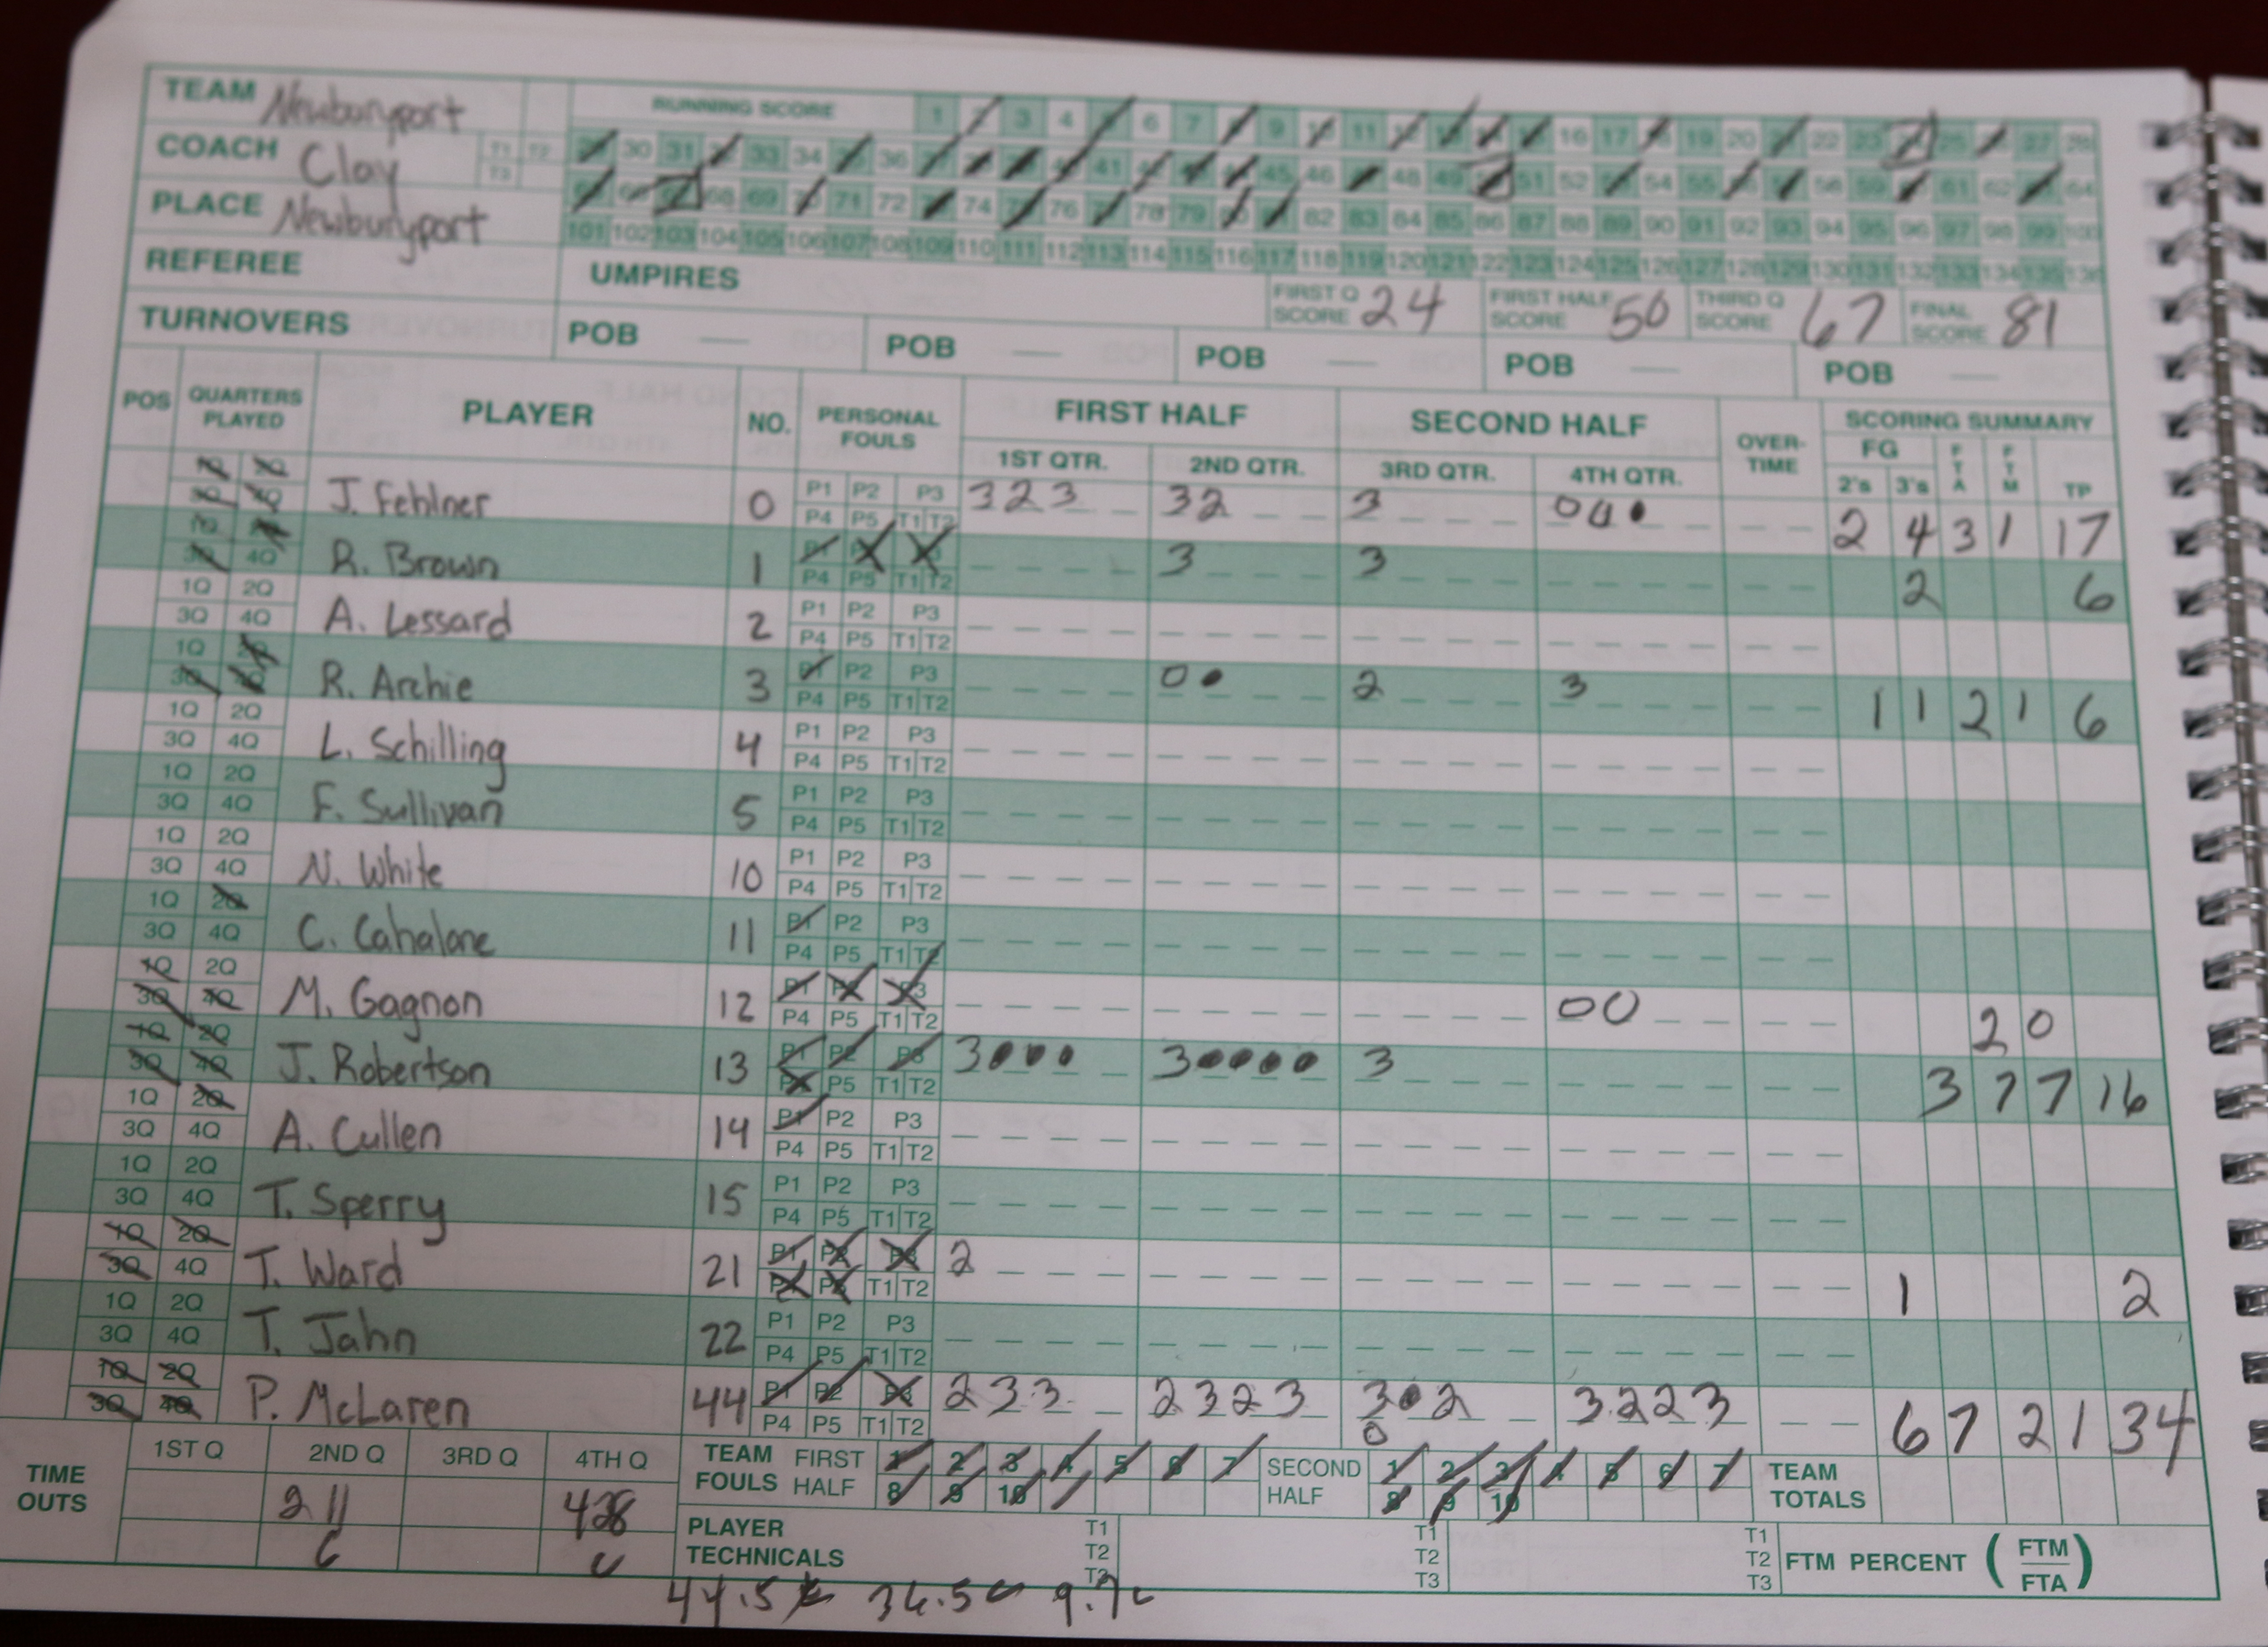 TEAM Newburyport RUNNING SCORE 1 2 3 4 5 6 7 8 9 10 11 12 13 14 15 16 17 18 19 20 21 22 23 24 25 26 27 28
COACH Clay T1 T2 T3 29 30 31 32 33 34 35 36 37 38 39 40 41 42 43 44 45 46 47 48 49 50 51 52 53 54 55 56 57 58 59 60 61 62 63 64
PLACE Newburyport 65 66 67 68 69 70 71 72 73 74 75 76 77 78 79 80 81 82 83 84 85 86 87 88 89 90 91 92 93 94 95 96 97 98 99 100
101 102 103 104 105 106 107 108 109 110 111 112 113 114 115 116 117 118 119 120 121 122 123 124 125 126 127 128 129 130 131 132 133 134 135 136
REFEREE UMPIRES FIRST Q SCORE 24 FIRST HALF SCORE 50 THIRD Q SCORE 67 FINAL SCORE 81
TURNOVERS POB — POB — POB — POB — POB —
POS QUARTERS PLAYED PLAYER NO. PERSONAL FOULS FIRST HALF SECOND HALF OVER-TIME SCORING SUMMARY
1ST QTR. 2ND QTR. 3RD QTR. 4TH QTR. FG 2's 3's FTA FTM TP
1Q 2Q 3Q 4Q J. Fehlner 0 P1 P2 P3 P4 P5 T1 T2 3 2 3 3 2 3 0 0 • 2 4 3 1 17
1Q 2Q 3Q 4Q R. Brown 1 P1 P2 P3 P4 P5 T1 T2 3 3 2 6
1Q 2Q 3Q 4Q A. Lessard 2 P1 P2 P3 P4 P5 T1 T2
1Q 2Q 3Q 4Q R. Archie 3 P1 P2 P3 P4 P5 T1 T2 0 • 2 3 1 1 2 1 6
1Q 2Q 3Q 4Q L. Schilling 4 P1 P2 P3 P4 P5 T1 T2
1Q 2Q 3Q 4Q F. Sullivan 5 P1 P2 P3 P4 P5 T1 T2
1Q 2Q 3Q 4Q N. White 10 P1 P2 P3 P4 P5 T1 T2
1Q 2Q 3Q 4Q C. Cahalane 11 P1 P2 P3 P4 P5 T1 T2
1Q 2Q 3Q 4Q M. Gagnon 12 P1 P2 P3 P4 P5 T1 T2 0 0 2 0
1Q 2Q 3Q 4Q J. Robertson 13 P1 P2 P3 P4 P5 T1 T2 3 • • • 3 • • • • 3 3 7 7 16
1Q 2Q 3Q 4Q A. Cullen 14 P1 P2 P3 P4 P5 T1 T2
1Q 2Q 3Q 4Q T. Sperry 15 P1 P2 P3 P4 P5 T1 T2
1Q 2Q 3Q 4Q T. Ward 21 P1 P2 P3 P4 P5 T1 T2 2 1 2
1Q 2Q 3Q 4Q T. Jahn 22 P1 P2 P3 P4 P5 T1 T2
1Q 2Q 3Q 4Q P. McLaren 44 P1 P2 P3 P4 P5 T1 T2 2 3 3 2 3 2 3 3 • 2 0 3 2 2 3 6 7 2 1 34
TIME OUTS 1ST Q 2ND Q 3RD Q 4TH Q
2 11 428
TEAM FOULS FIRST HALF 1 2 3 4 5 6 7 8 9 10 SECOND HALF 1 2 3 4 5 6 7 8 9 10 TEAM TOTALS
PLAYER TECHNICALS T1 T2 T3 T1 T2 T3 T1 T2 T3 FTM PERCENT (FTM/FTA)
44.5 34.5 9.7